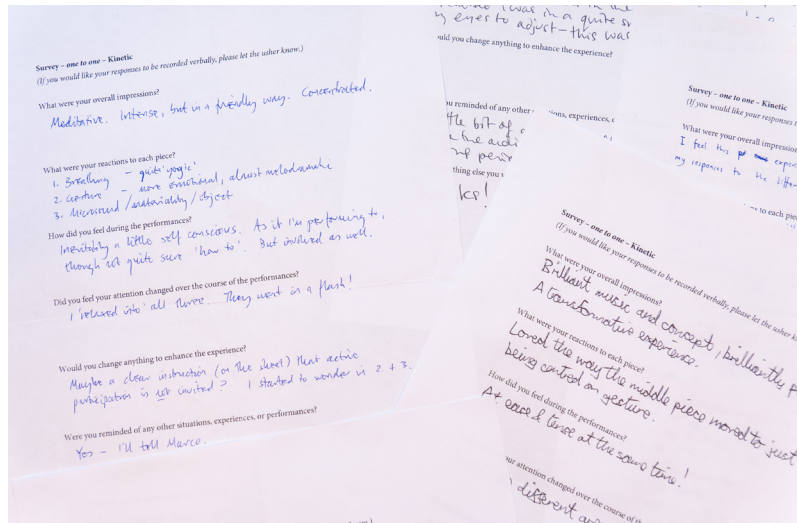 Survey – one to one – Kinetic
(If you would like your responses to be recorded verbally, please let the usher know.)
What were your overall impressions?
Meditative. Intense, but in a friendly way. Concentrated.
What were your reactions to each piece?
1. Breathing – quite 'yogic'
2. Gesture – more emotional, almost melodramatic
3. Microsound / materiality / object
How did you feel during the performances?
Inevitably a little self conscious. As if I'm performing to,
though not quite sure 'how to'. But involved as well.
Did you feel your attention changed over the course of the performances?
I 'relaxed into' all three. They went in a flash!
Would you change anything to enhance the experience?
Maybe a clear instruction (on the sheet) that active
participation is not invited? I started to wonder in 2 + 3.
Were you reminded of any other situations, experiences, or performances?
Yes – I'll tell Marco.
I was in a quite
eyes to adjust – this was
you change anything to enhance the experience?
reminded of any other
bit of
thing else you
Survey – one to one – Kinetic
(If you would like your responses
What were your overall
I feel this
my responses to the
to each
Survey – one to one – Kinetic
(If you would like your responses to be recorded verbally, please let the usher
What were your overall impressions?
Brilliant music and concept, brilliantly
A transformative experience.
What were your reactions to each piece?
Loved the way the middle piece moved to just
being centred on gesture.
How did you feel during the performances?
At ease & tense at the same time!
attention changed over the course of
different